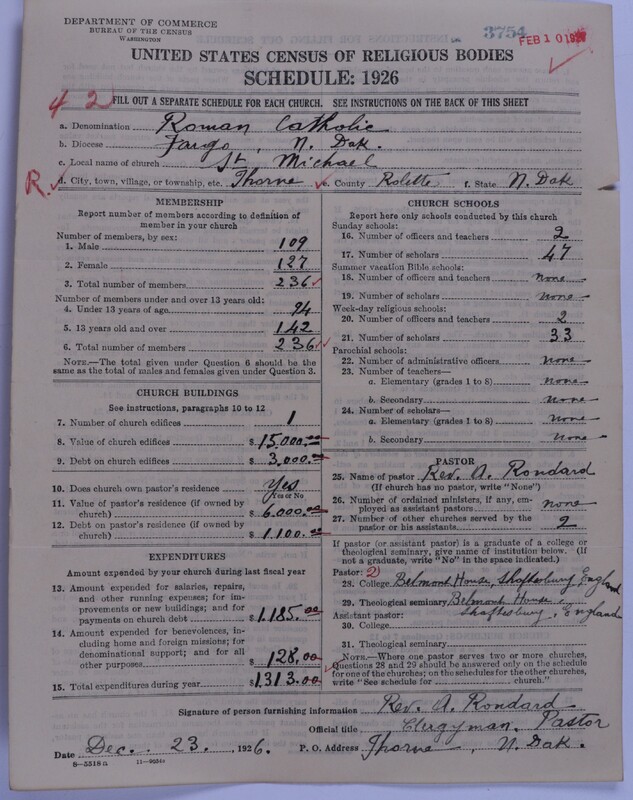 DEPARTMENT OF COMMERCE
BUREAU OF THE CENSUS
WASHINGTON
3754
FEB 10
UNITED STATES CENSUS OF RELIGIOUS BODIES
SCHEDULE: 1926
4 2
FILL OUT A SEPARATE SCHEDULE FOR EACH CHURCH. SEE INSTRUCTIONS ON THE BACK OF THIS SHEET
a. Denomination Roman Catholic
b. Diocese Fargo, N. Dak.
c. Local name of church St Michael
R. d. City, town, village, or township, etc. Thorne e. County Rolette f. State N. Dak
MEMBERSHIP
Report number of members according to definition of
member in your church
Number of members, by sex:
1. Male 109
2. Female 127
3. Total number of members 236
Number of members under and over 13 years old:
4. Under 13 years of age 94
5. 13 years old and over 142
6. Total number of members 236
NOTE.—The total given under Question 6 should be
same as the total of males and females given under Question 3.
CHURCH BUILDINGS
See instructions, paragraphs 10 to 12
7. Number of church edifices 1
8. Value of church edifices $ 15.000.00
9. Debt on church edifices $ 3.000.00
10. Does church own pastor's residence Yes
Yes or No
11. Value of pastor's residence (if owned by
church) $ 6.000.00
12. Debt on pastor's residence (if owned by
church) $ 1.100.00
EXPENDITURES
Amount expended by your church during last fiscal year
13. Amount expended for salaries, repairs,
and other running expenses; for im-
provements or new buildings; and for
payments on church debt $ 1.185.00
14. Amount expended for benevolences, in-
cluding home and foreign missions; for
denominational support; and for all
other purposes $ 128.00
15. Total expenditures during year $ 1313.00
CHURCH SCHOOLS
Report here only schools conducted by this church
Sunday schools:
16. Number of officers and teachers 2
17. Number of scholars 47
Summer vacation Bible schools:
18. Number of officers and teachers none
19. Number of scholars none
Week-day religious schools:
20. Number of officers and teachers 2
21. Number of scholars 33
Parochial schools:
22. Number of administrative officers none
23. Number of teachers—
a. Elementary (grades 1 to 8) none
b. Secondary none
24. Number of scholars—
a. Elementary (grades 1 to 8) none
b. Secondary none
PASTOR
25. Name of pastor Rev. A. Rondard
(If church has no pastor, write "None")
26. Number of ordained ministers, if any, em-
ployed as assistant pastors none
27. Number of other churches served by the
pastor or his assistants 2
If pastor (or assistant pastor) is a graduate of a college or
theological seminary, give name of institution below. (If
not a graduate, write "No" in the space indicated.)
Pastor: 2)
28. College Belmont House, Shaftesbury, England
29. Theological seminary Belmont House,
Assistant pastor: Shaftesbury, England
30. College
31. Theological seminary
NOTE.—Where one pastor serves two or more churches,
Questions 28 and 29 should be answered only on the schedule
for one of the churches; on the schedules for the other churches,
write "See schedule for church."
Signature of person furnishing information Rev. A. Rondard
Official title Clergyman, Pastor
Date Dec. 23. 1926. P. O. Address Thorne, N. Dak.
8—5518a